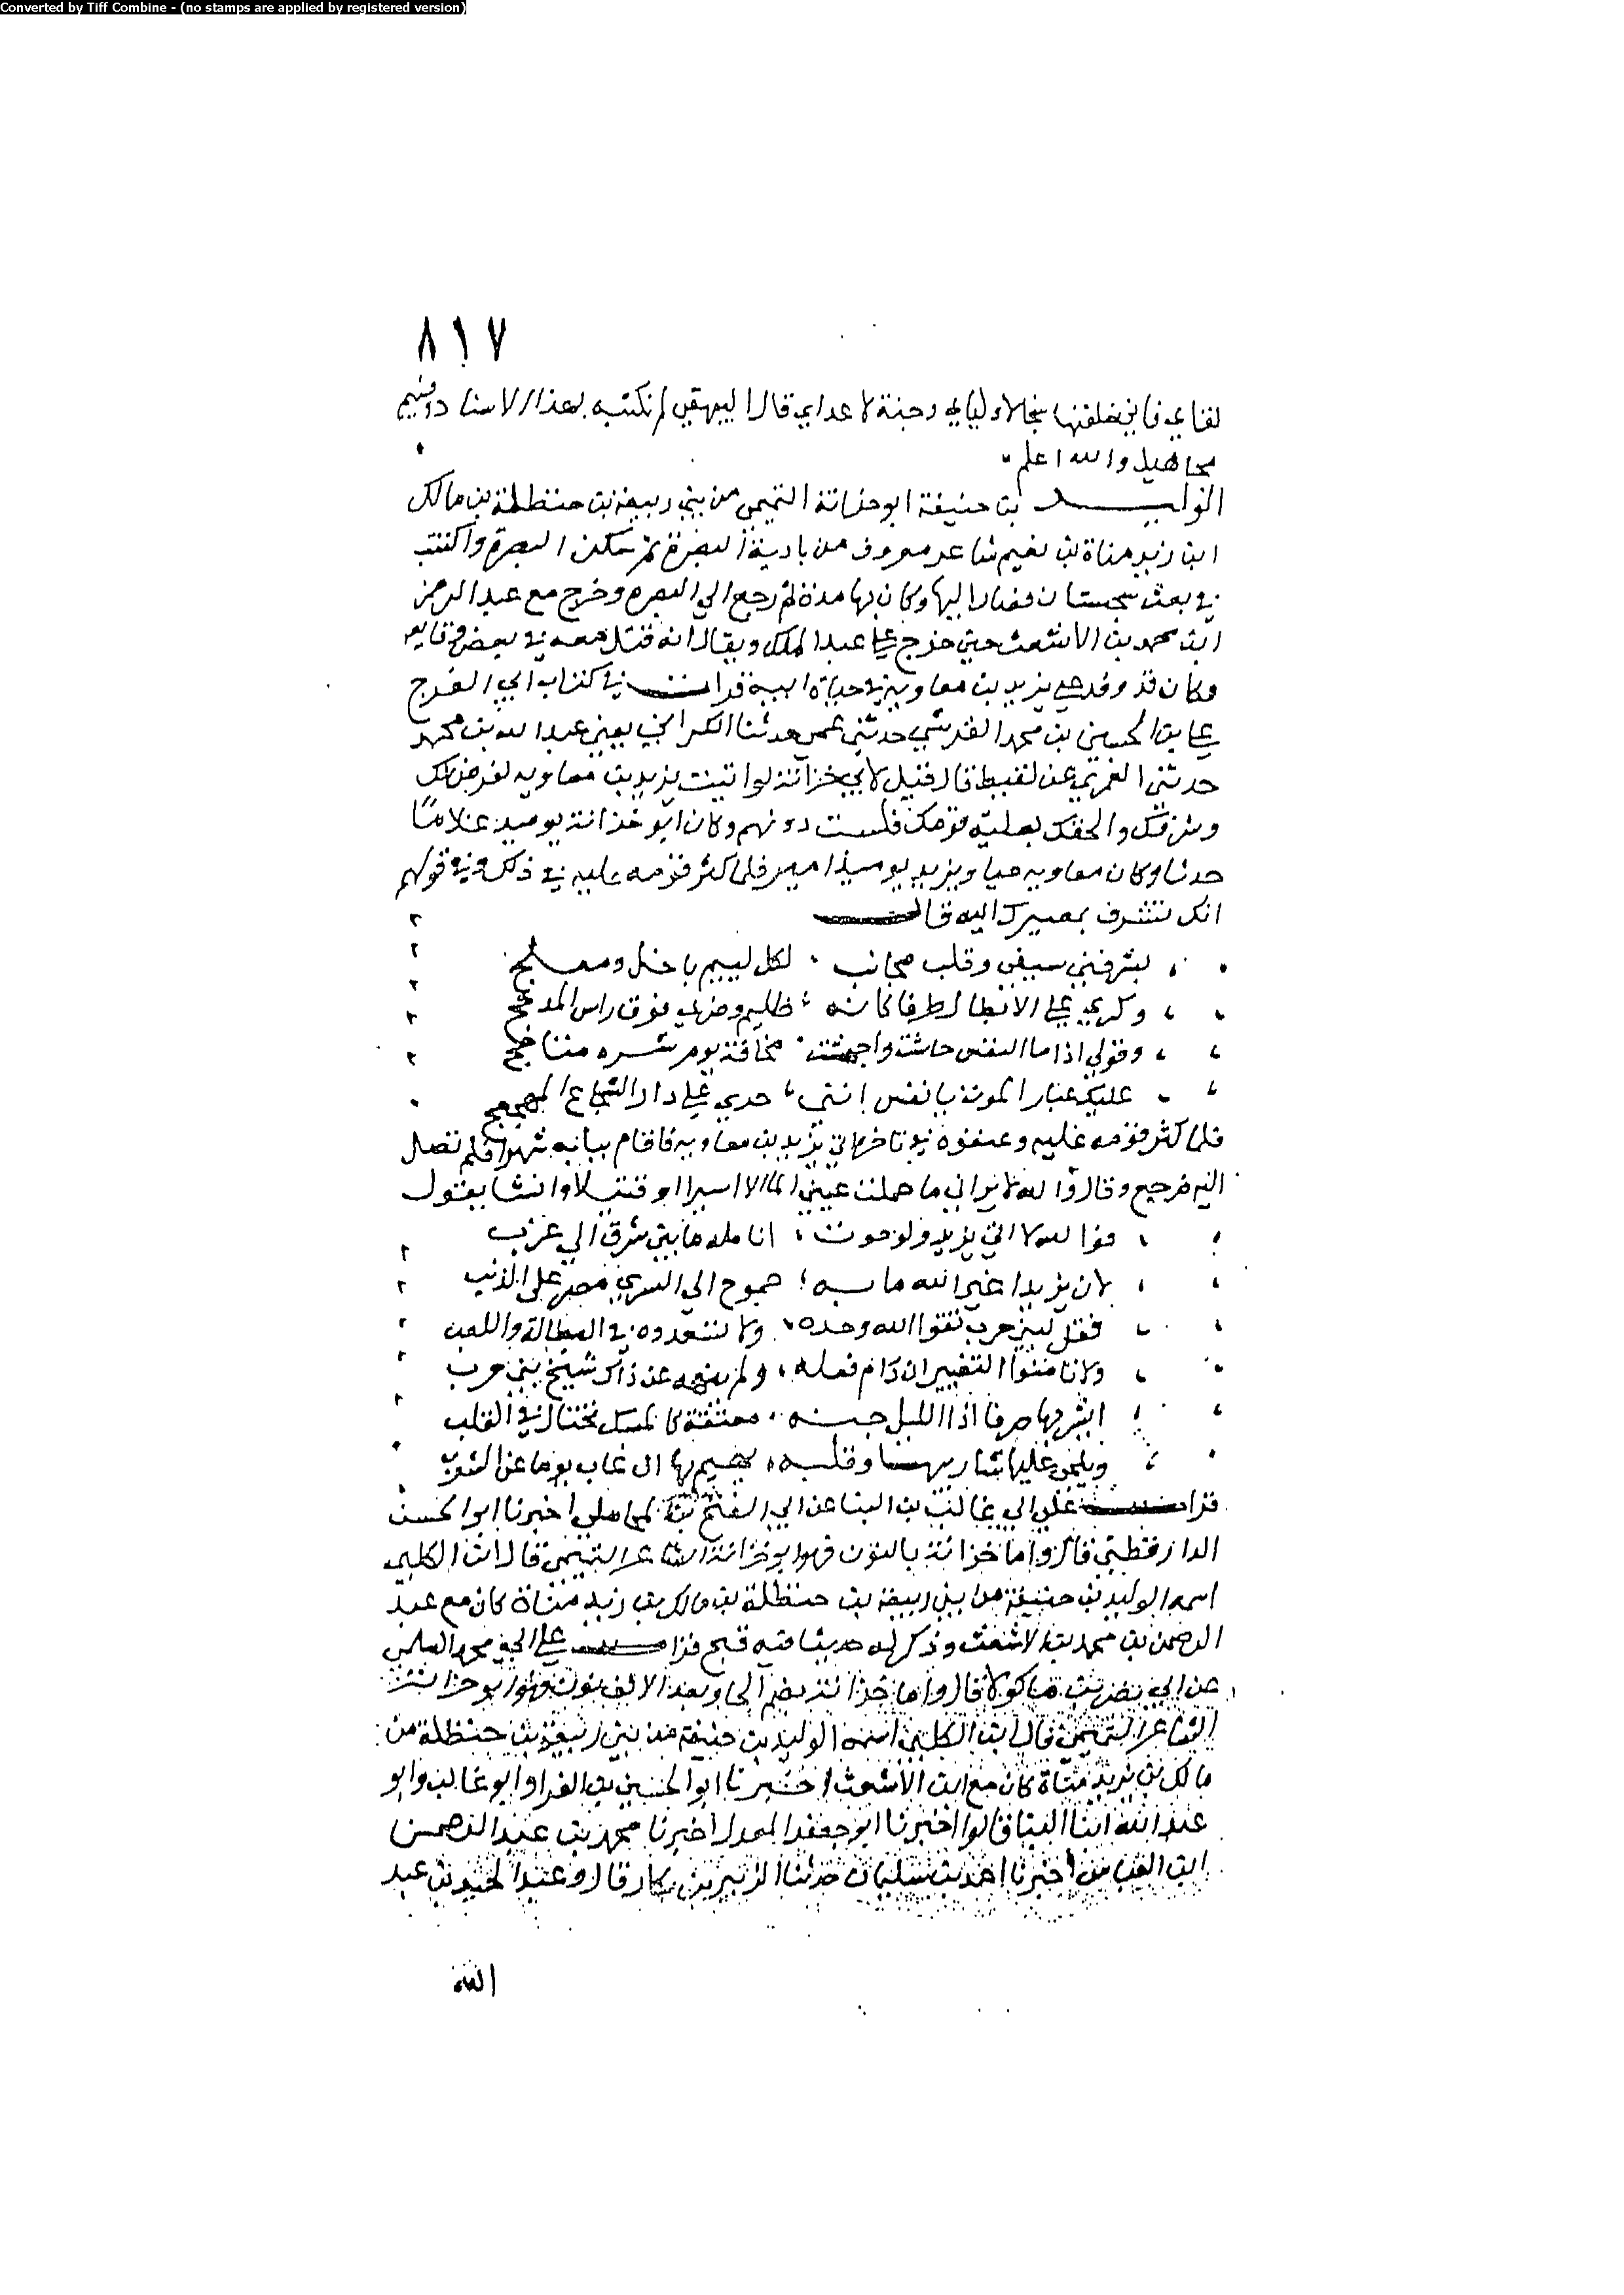 Converted by Tiff Combine - (no stamps are applied by registered version)
٨١٧
لقاي فاني خلقتها سجنا لاوليايي وجنة لاعداي قال البيهقي لم نكتبه بهذا الاسناد وفيهم
مجاهيل والله اعلم
الوليد بن حنيفة ابو حزانة التميمي من بني ربيعة بن حنظلة بن مالك
ابن زيد مناة بن تميم شاعر معروف من بادية البصرة ثم سكن البصرة واكتتب
في بعث سجستان فصار اليها وكان بها مدة ثم رجع الي البصره وخرج مع عبد الرحمن
ابن محمد بن الاشعث حين خرج علي عبد الملك ويقال انه قتل معه في بعض وقايعه
وكان قد وفد علي يزيد بن معاوية في حياة ابيه قرات في كتاب ابي الفرج
علي بن الحسين بن محمد القرشي حدثني عمي حدثنا الكراني يعني عبد الله بن محمد
حدثني العمري عن لقيط قال قيل لابي خزانة لو اتيت يزيد بن معاويه لفرض لك
وشرفك والحقك بعلية قومك فلست دونهم وكان ابو خزانة يوميد غلاما
حدثا وكان معاويه حيا ويزيد يوميذ امير فلما كثر قومه عليه في ذلك وفي قولهم
انك ستشرف بمصيرك اليه قال
يشرفني سيفي وقلب مجانب لكل لييم باخل ومعلهج
وكري علي الابطال طرفا كانه ظليم وضربي فوق راس المدجج
وقولي اذا ما النفس جاشت واجهشت مخافة يوم شره متاجج
عليك غبار الموت يا نفس انني جري علي دار الشجاع المهجهج
فلما كثر قومه عليه وعنفوه في تاخره اتي يزيد بن معاوية فاقام ببابه شهرا فلم يصل
اليه فرجع وقال والله لا يراني ما حملت عيني الما الا اسيرا او قتيلا وانشا يقول
فوالله لا اتي يزيد ولو حوت انامله ما بين شرق الي غرب
لان يزيدا غير الله ما به جموح الي السوي مصر علي الذنب
فقل لبني حرب تقوا الله وحده ولا تسعدوه في البطالة واللعب
ولا تامنوا التغيير ان دام فعله ولم ينهه عن ذاك شيخ بني حرب
ايشربها صرفا اذا الليل جنه معتقة كالمسك تختال في القلب
ويلحي عليها شاربيها وقلبه يهيم بها ان غاب يوما عن الشرب
قرات علي ابي غالب بن البنا عن ابي الفتح بن المحاملي اخبرنا ابو الحسن
الدارقطني قال واما خزانة بالنون فهو ابو خزانة الشاعر التميمي قال ابن الكلبي
اسمه الوليد بن حنيفة من بني ربيعة بن حنظلة بن مالك بن زيد مناة كان مع عبد
الرحمن بن محمد بن الاشعث وذكر له حديثا فيه قبح قرات علي ابي محمد السلمي
عن ابي نصر بن ماكولا قال واما خزانة بضم الحا وبعد الالف نون فهو ابو حزانة
الشاعر التميمي قال ابن الكلبي اسمه الوليد بن حنيفة من بني ربيعة بن حنظلة من
مالك بن زيد مناة كان مع ابن الاشعث اخبرنا ابو الحسين بن الفرا وابو غالب وابو
عبد الله ابنا البنا قالوا اخبرنا ابو جعفر المعدل اخبرنا محمد بن عبد الرحمن
ابن العباس اخبرنا احمد بن سليمان حدثنا الزبير بن بكار قال وعبد الحميد بن عبد
الله